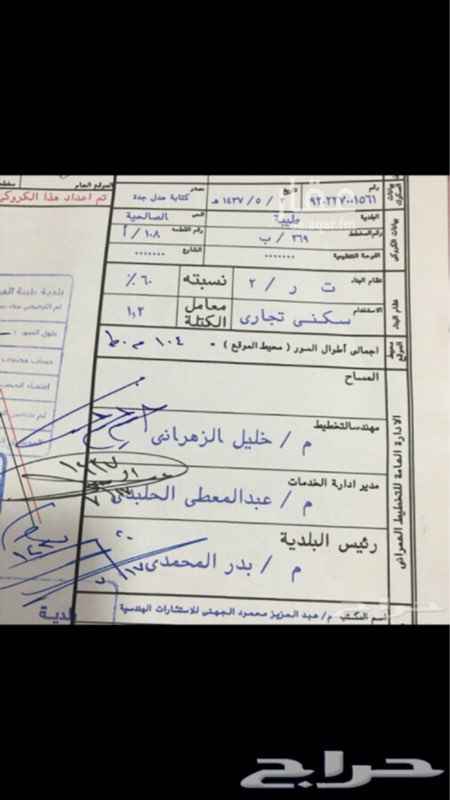 الموقع العام
تم اعداد هذا الكروكي
رقم ٩٢٠٢٢٧٠٠١٥٦١ تاريخ ٢ / ٥ / ١٤٣٧ هـ مصدر كتابة عدل جدة
البلدية طيبة الحي الصالحية
رقم المخطط ٣٦٩ / ب رقم القطعة ١٠٨ / أ
الفرعة التنظيمية ....... الشارع .......
نظام البناء ت ر / ٢ نسبته ٦٠ ٪
الاستخدام سكني تجاري معامل الكتلة ١,٢
اجمالي أطوال السور ( محيط الموقع ) ٠ ١٠٤ م.ط
المساح
مهندس التخطيط
م / خليل الزهراني
مدير ادارة الخدمات
م / عبدالمعطي
رئيس البلدية
م / بدر المحمدي
الادارة العامة للتخطيط العمراني
اسم المكتب م / عبد العزيز محمود الجهني للاستشارات الهندسية
بلدية
حراج